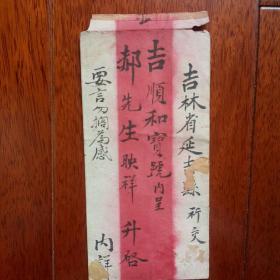 吉林省延吉縣祈交
吉順和寶號內呈
郝先生映祥升啓
要言勿擱為感
內詳